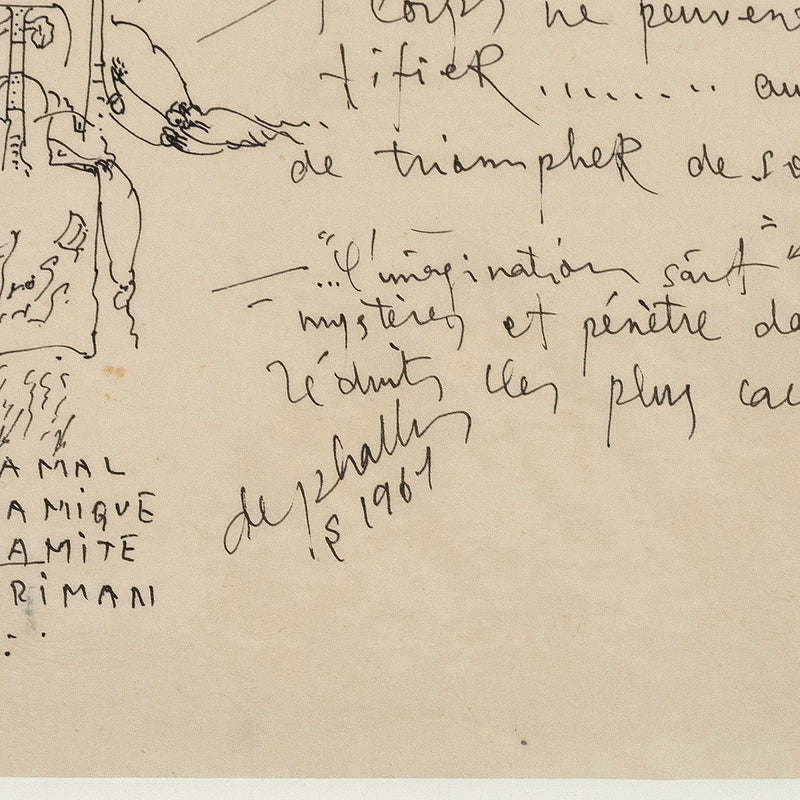 corps ne peuvent
tifieR ........ au
de triompheR de so
— "...l'imagination sait" "
mystères et pénètre da
réduits les plus cac
de phallus
§ 1967
AMAL
AMIQUE
AMITE
RIMAN